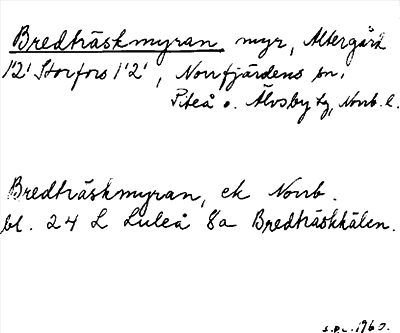 Bredträskmyran, myr, Altergård
1'2' Storfors 1'2', Norrfjärdens sn,
Piteå o. Älvsby tg, Norrb. l.
Bredträskmyran, ek Norrb.
bl. 24 L Luleå 8a Bredträskhälen.
1960.